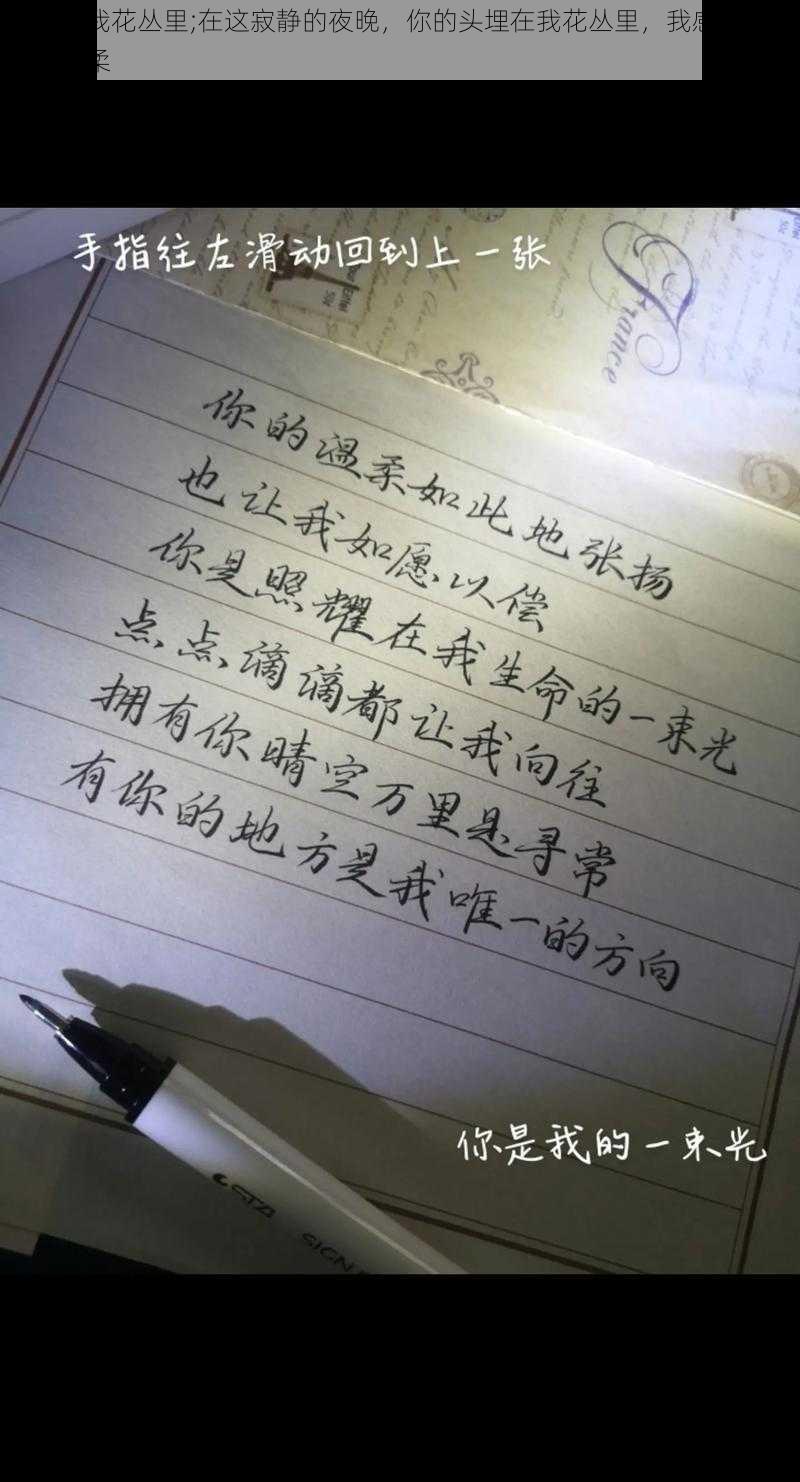 我花丛里;在这寂静的夜晚，你的头埋在我花丛里，我感
柔
手指往左滑动回到上一张
France
你的温柔如此地张扬
也让我如愿以偿
你是照耀在我生命的一束光
点点滴滴都让我向往
拥有你晴空万里是寻常
有你的地方是我唯一的方向
你是我的一束光
STA SIGN